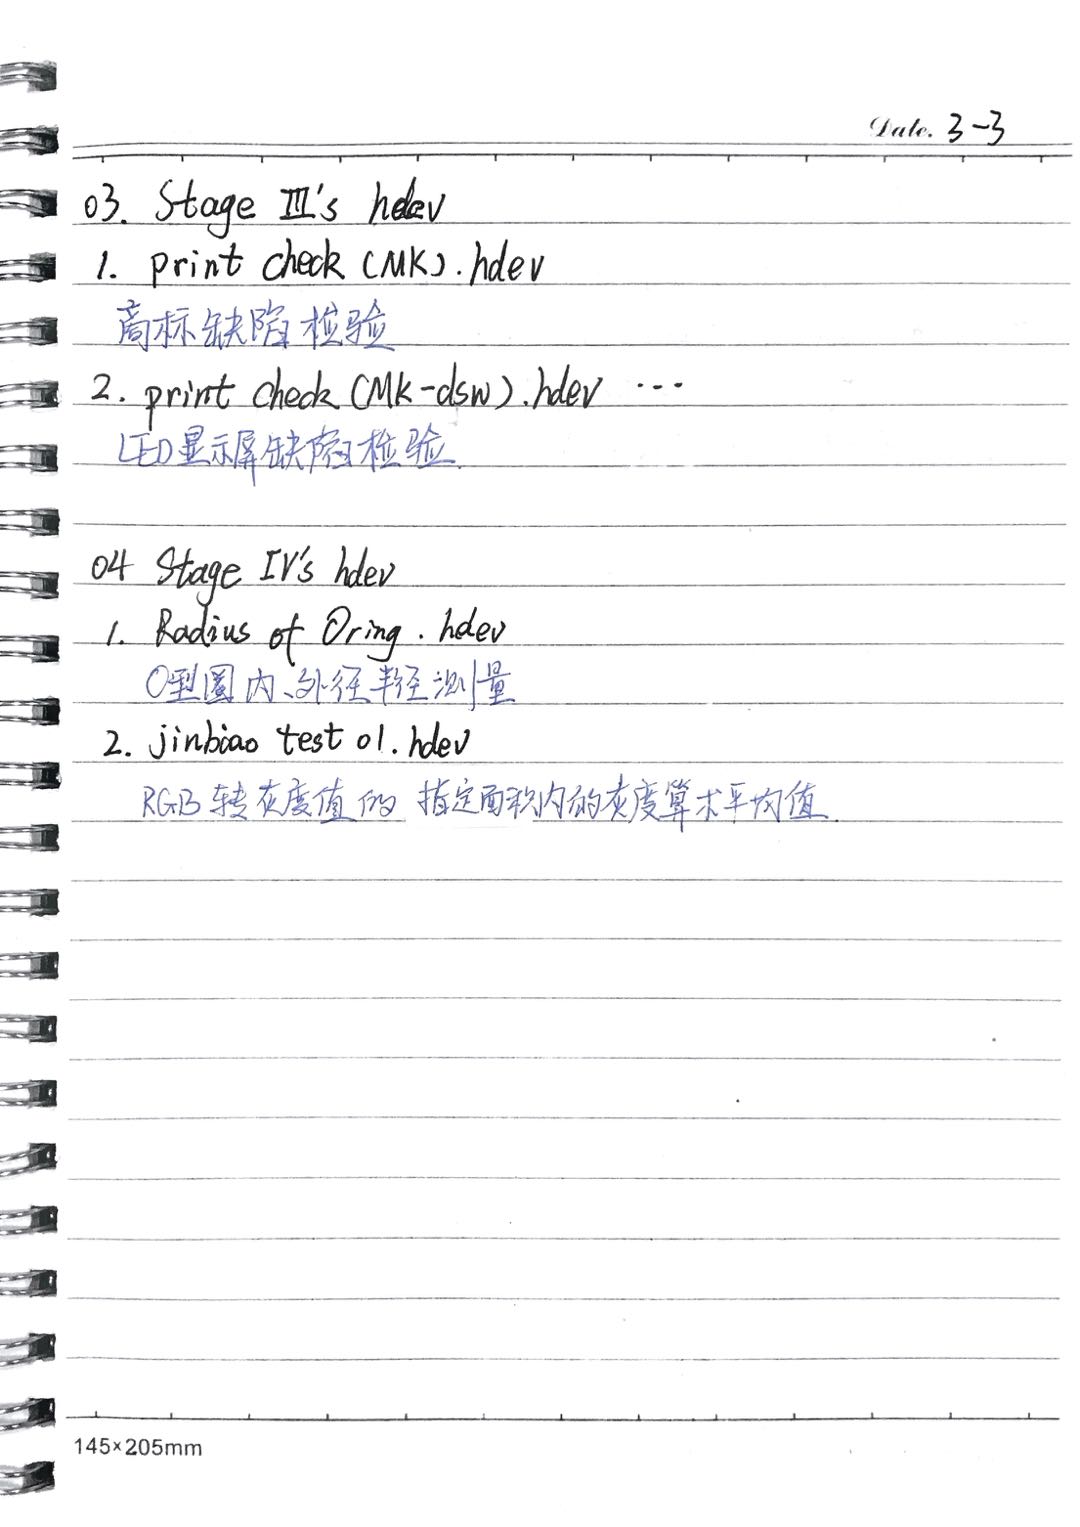 Date. 3-3
03. Stage III's hdev
1. print check (MK).hdev
商标缺陷检验
2. print check (MK-dsw).hdev ...
LED显示屏缺陷检验.
04 Stage IV's hdev
1. Radius of Oring.hdev
O型圈内、外径半径测量
2. jinbiao test 01.hdev
RGB转灰度值的 指定面积内的灰度算术平均值.
145×205mm